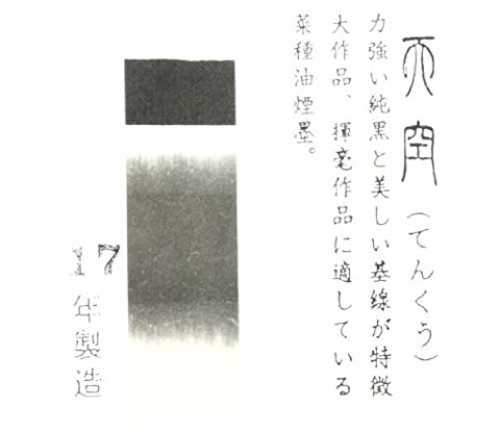 天空（てんくう）
力強い純黒と美しい基線が特徴
大作品、揮毫作品に適している
菜種油煙墨。
17年製造